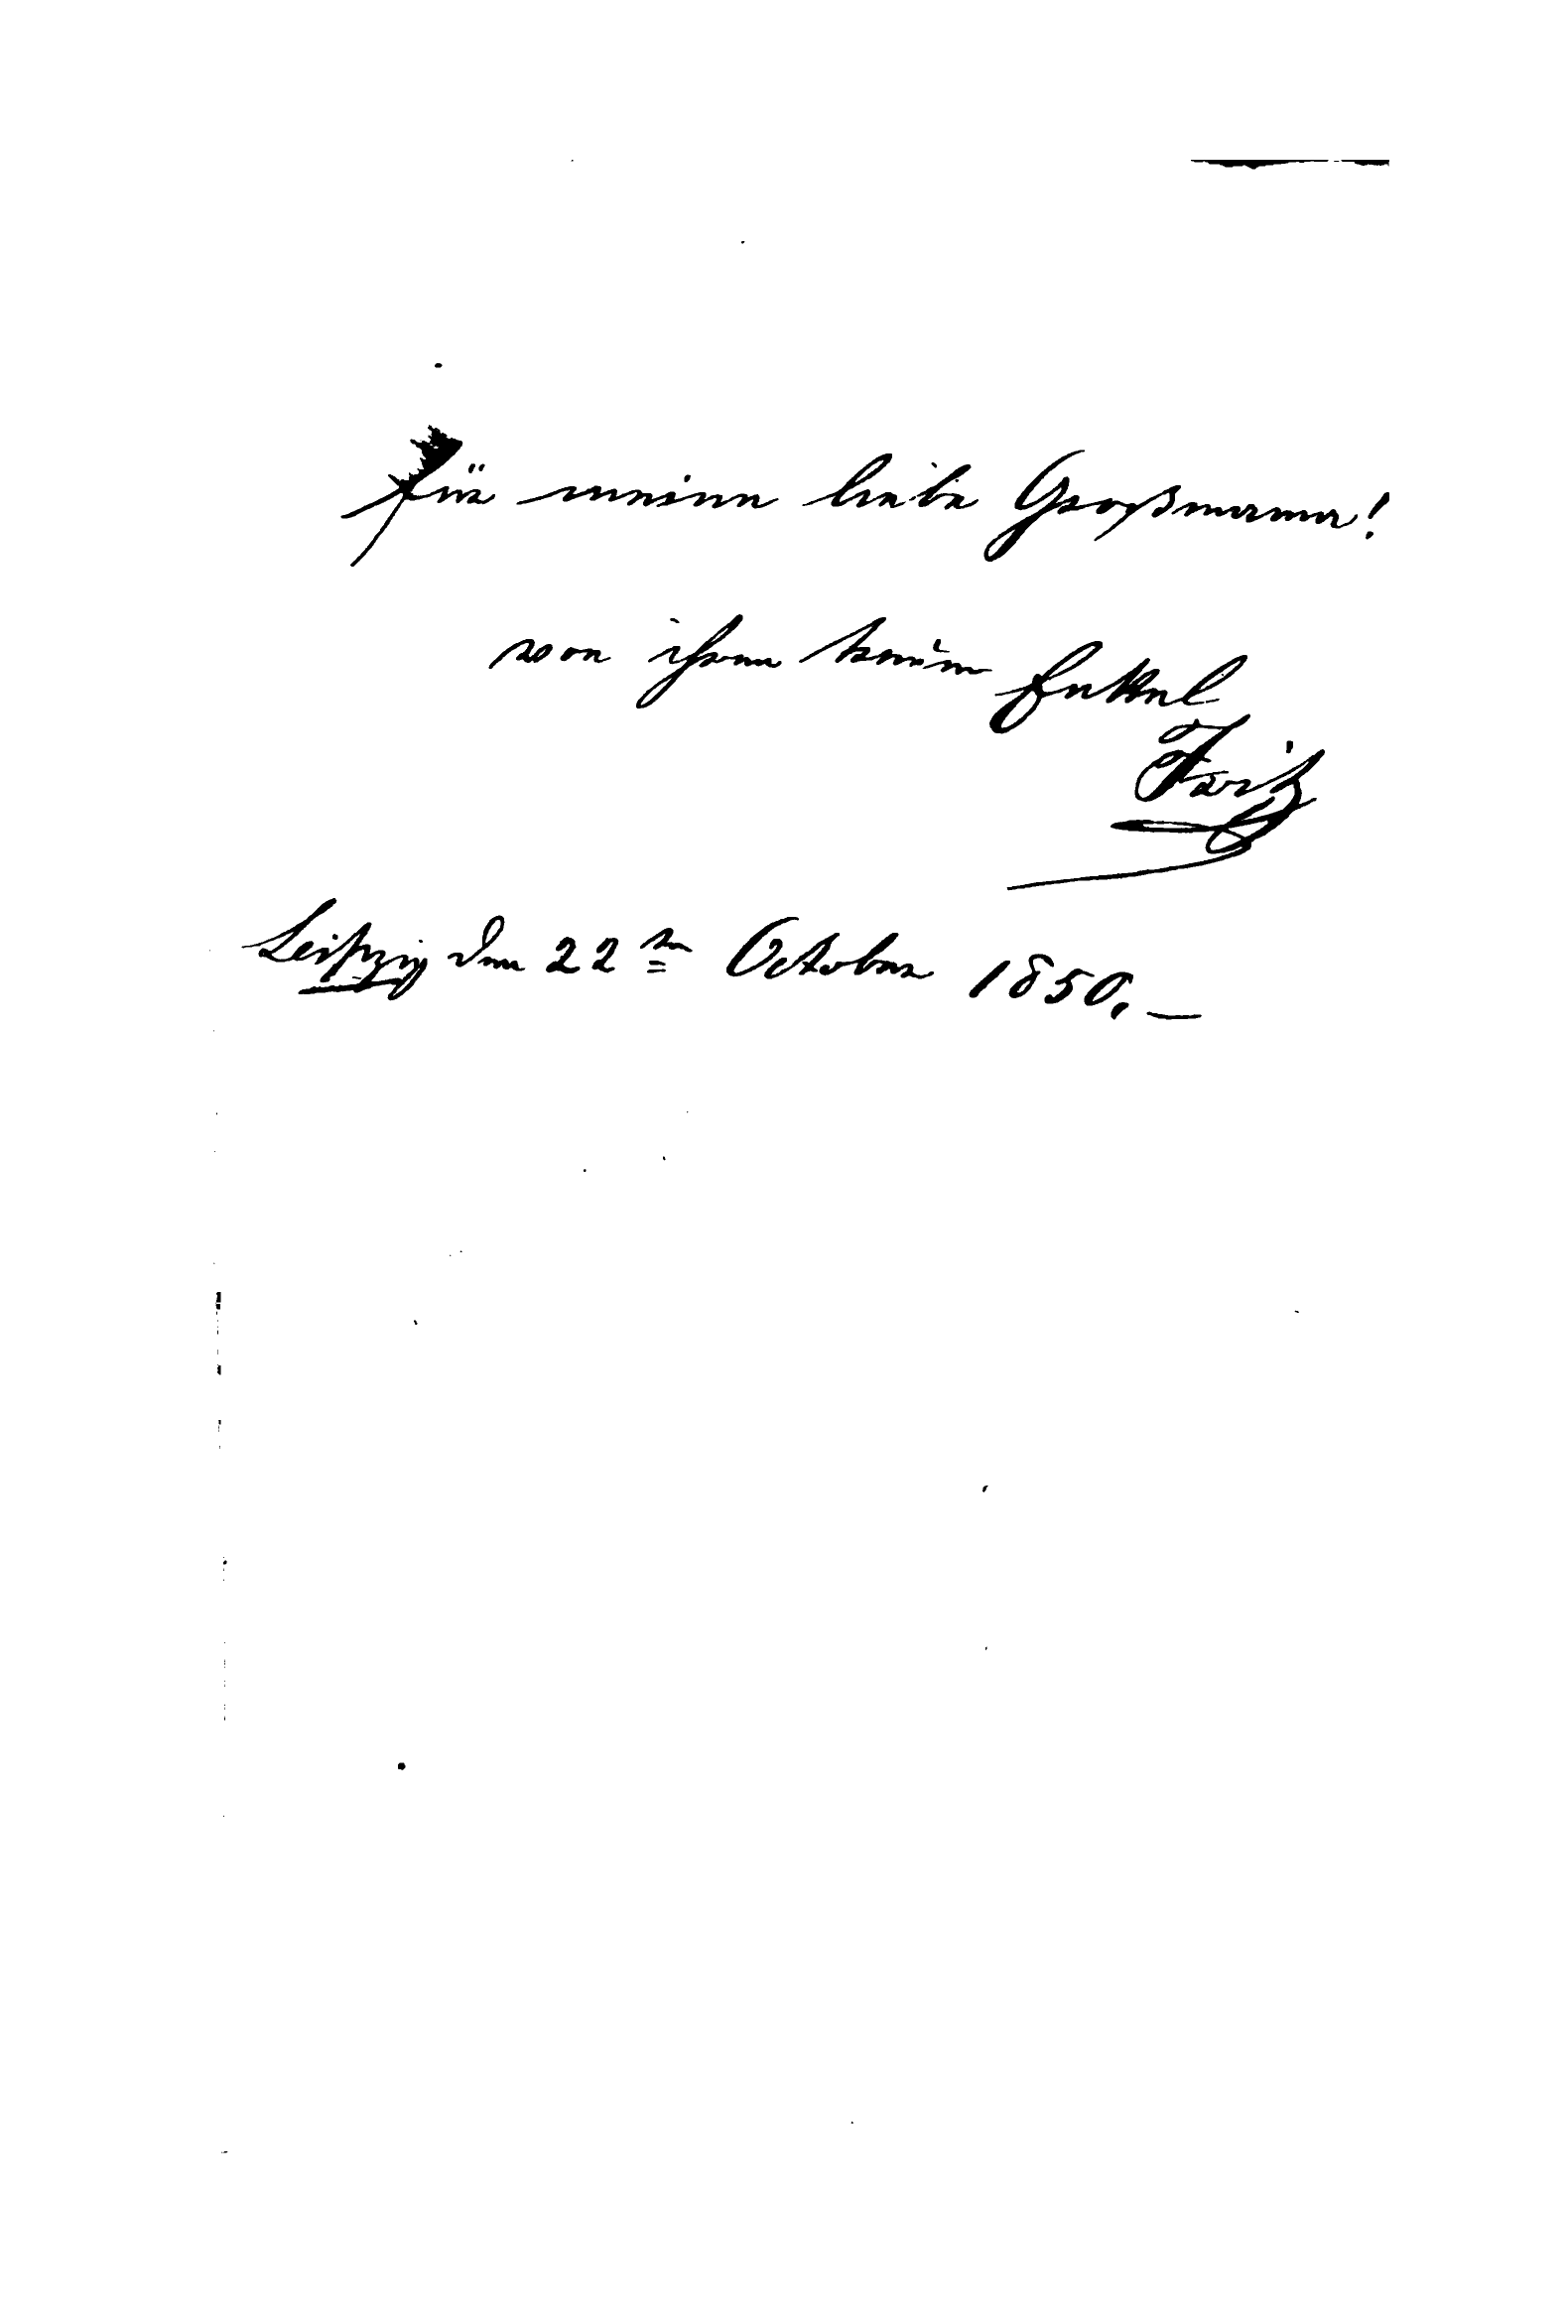 Für meine liebe Großmama!
von ihrem treuen Enkel
Fritz
Leipzig den 22ten October 1850.—